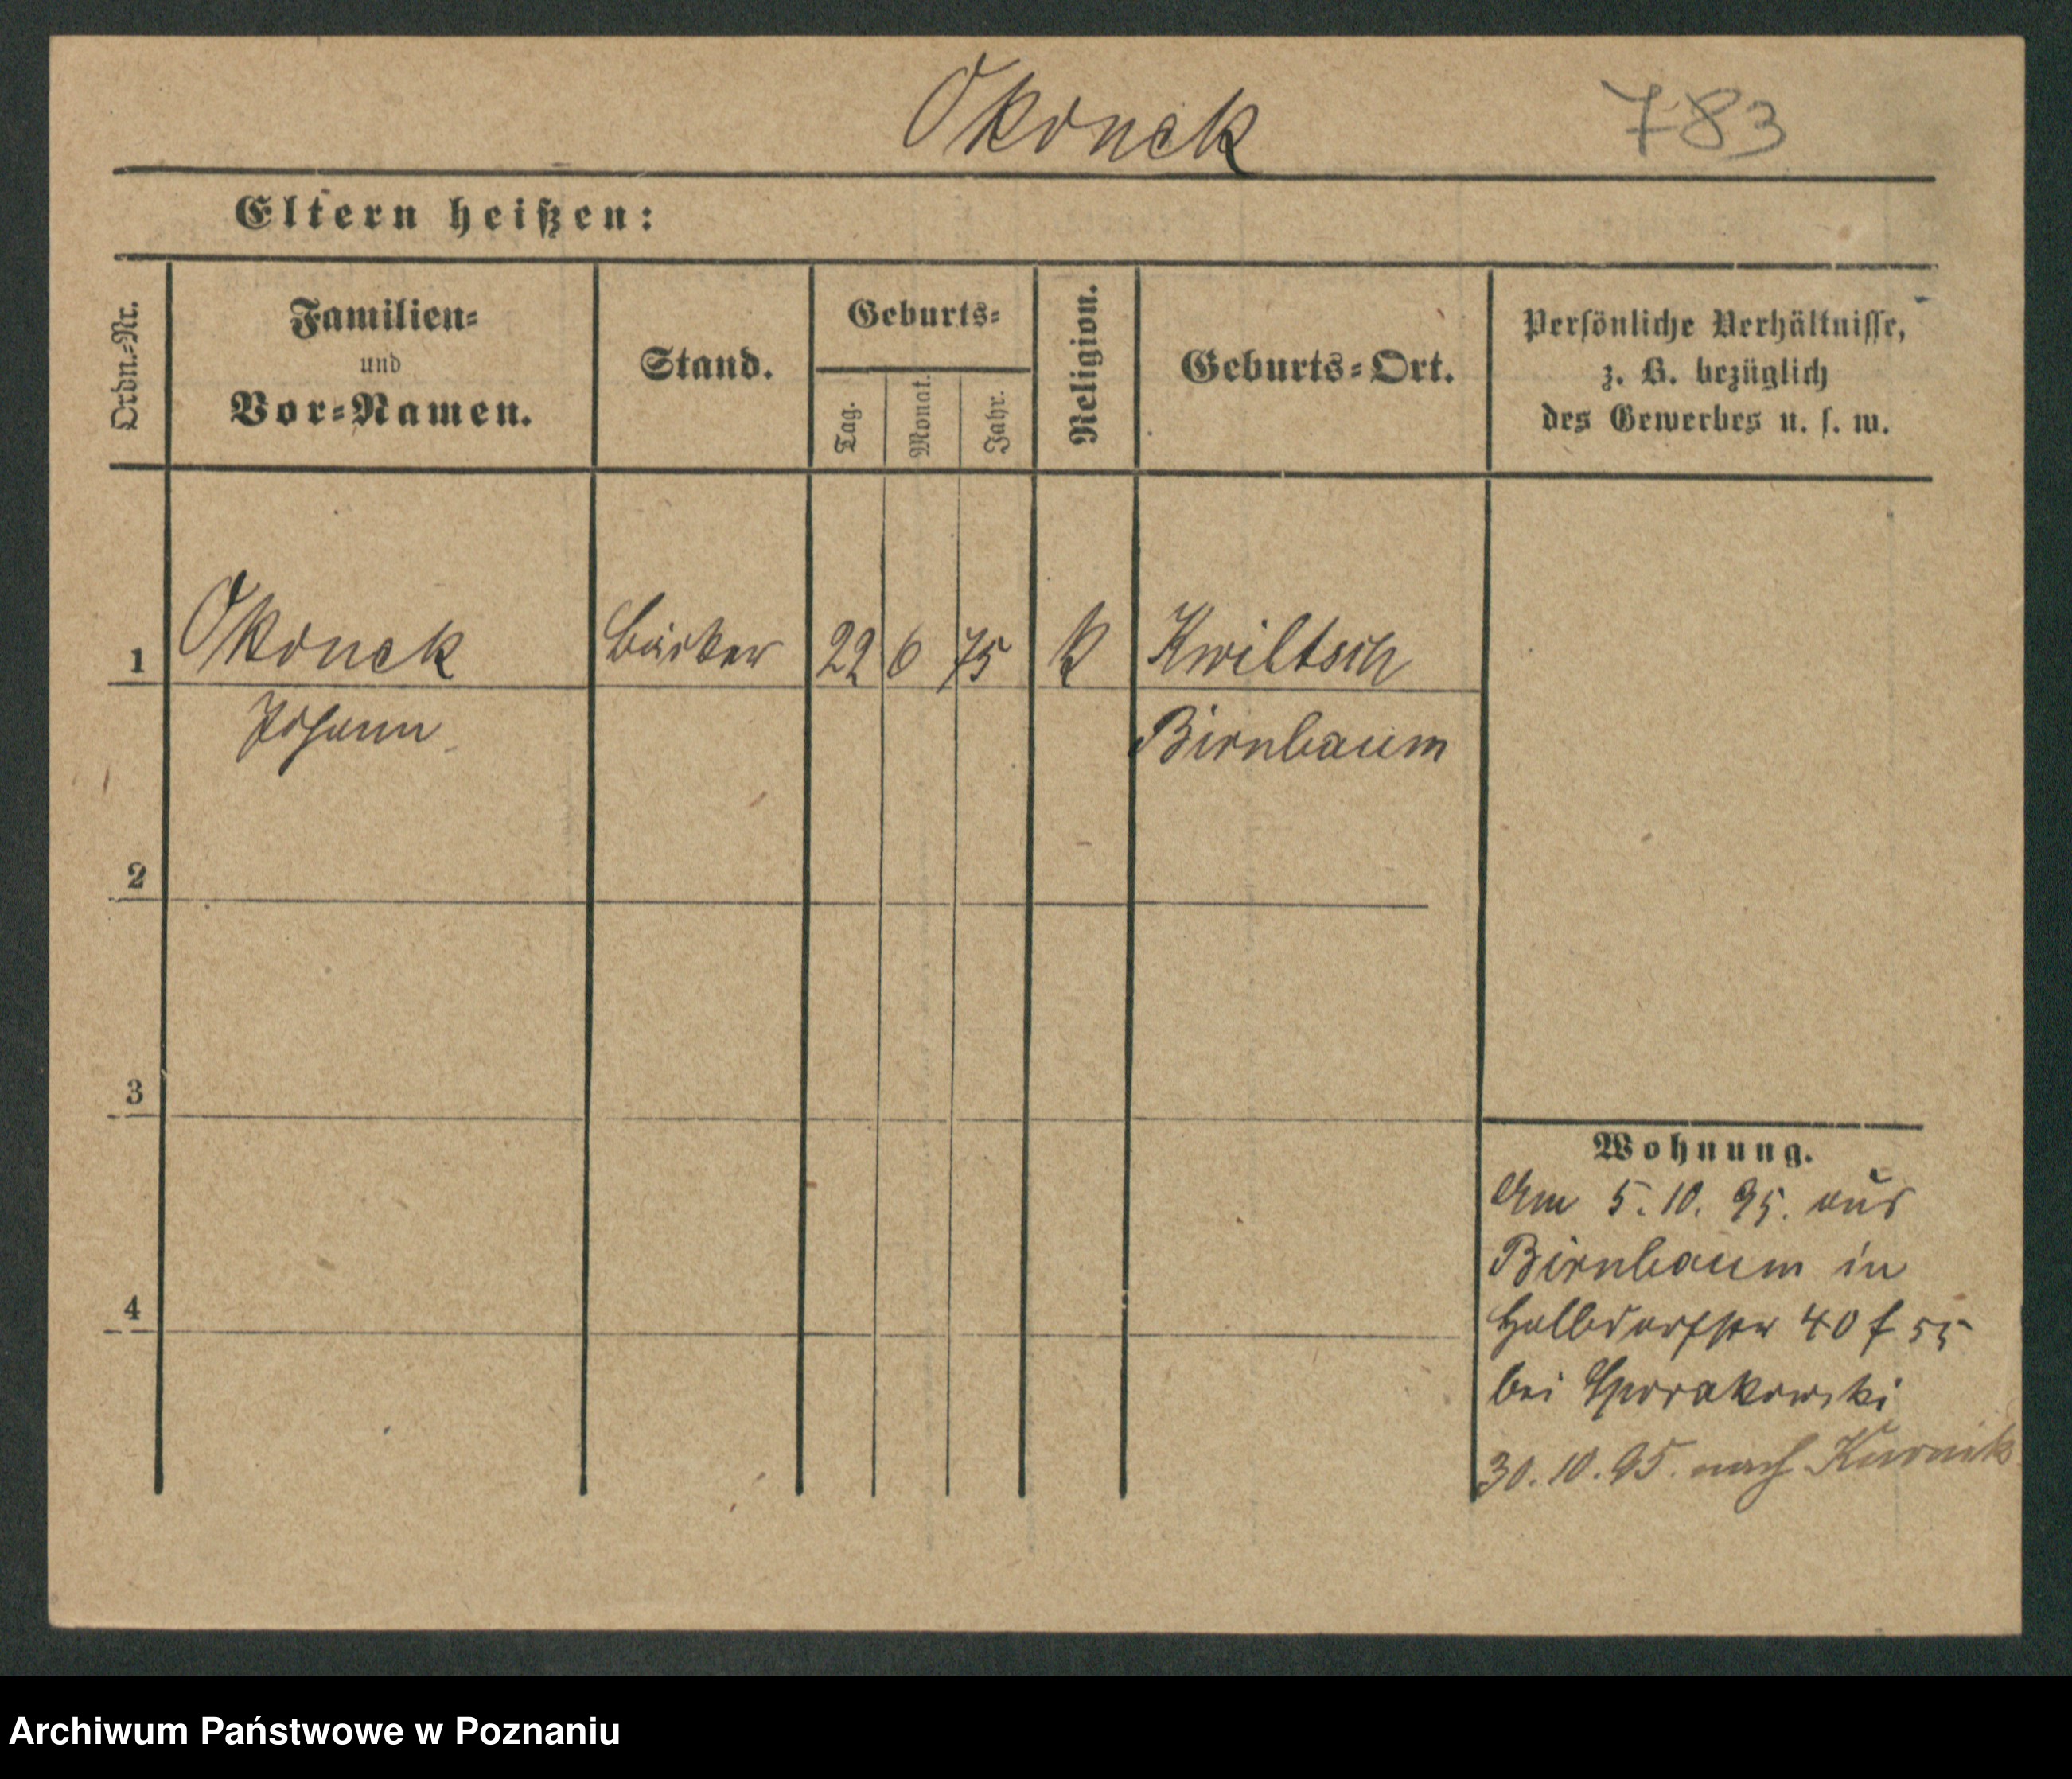 Okonek 783
Eltern heißen:
Ordn.=Nr.
Familien=
und
Vor=Namen.
Stand.
Geburts=
Tag.
Monat.
Jahr.
Religion.
Geburts=Ort.
Persönliche Verhältnisse,
z. B. bezüglich
des Gewerbes u. s. w.
1 Okonek Bäcker 22 6 75 k Kwiltsch
Johann Birnbaum
2
3
4
Wohnung.
Am 5.10.95. aus
Birnbaum in
Halbdorfstr 40 f 55
bei
30.10.95. nach Kurnik
Archiwum Państwowe w Poznaniu